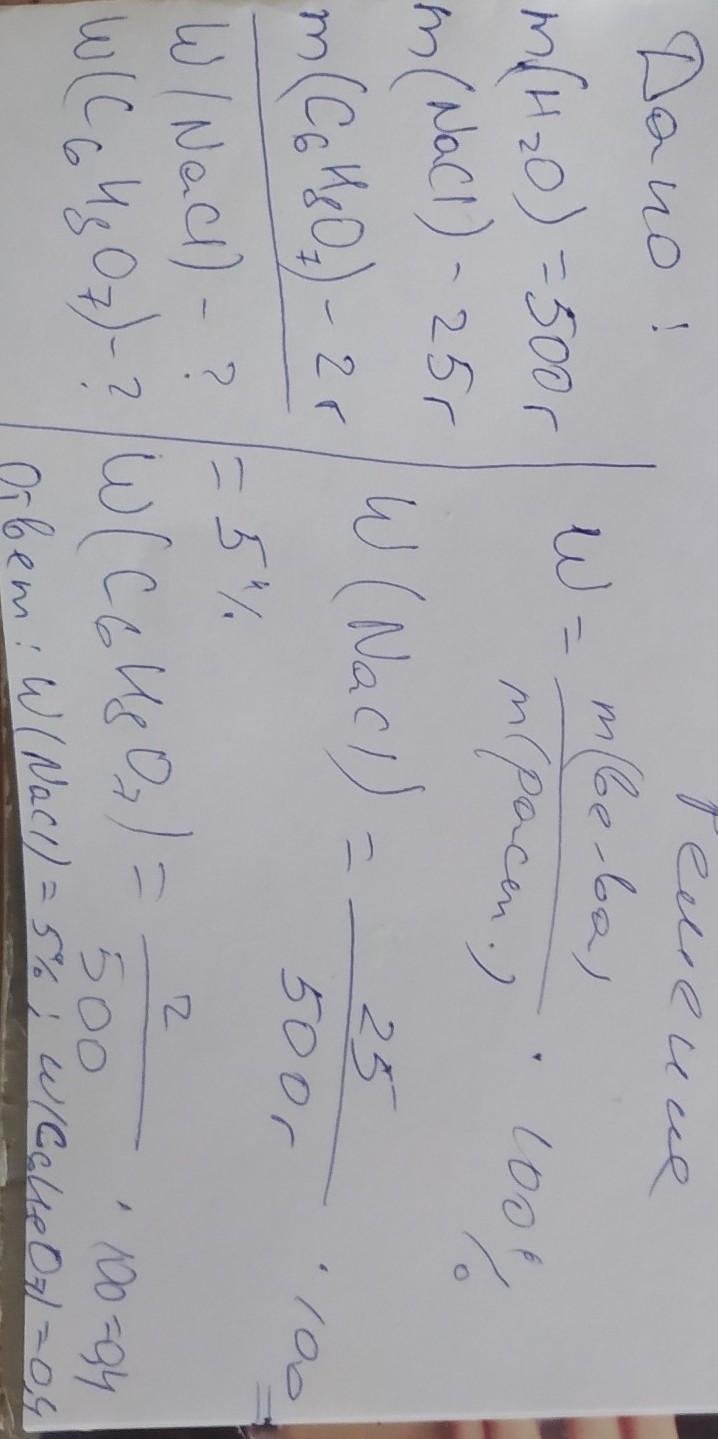 Дано:
m(H₂O) = 500г
m(NaCl) - 25г
m(C₆H₈O₇) - 2г
W(NaCl) - ?
W(C₆H₈O₇) - ?
Решение
W = m(ве-ва) / m(раст.) · 100%
W(NaCl) = 25 / 500г · 100 =
= 5%
W(C₆H₈O₇) = 2 / 500 · 100 = 0,4
Ответ: W(NaCl) = 5%; W(C₆H₈O₇) = 0,4